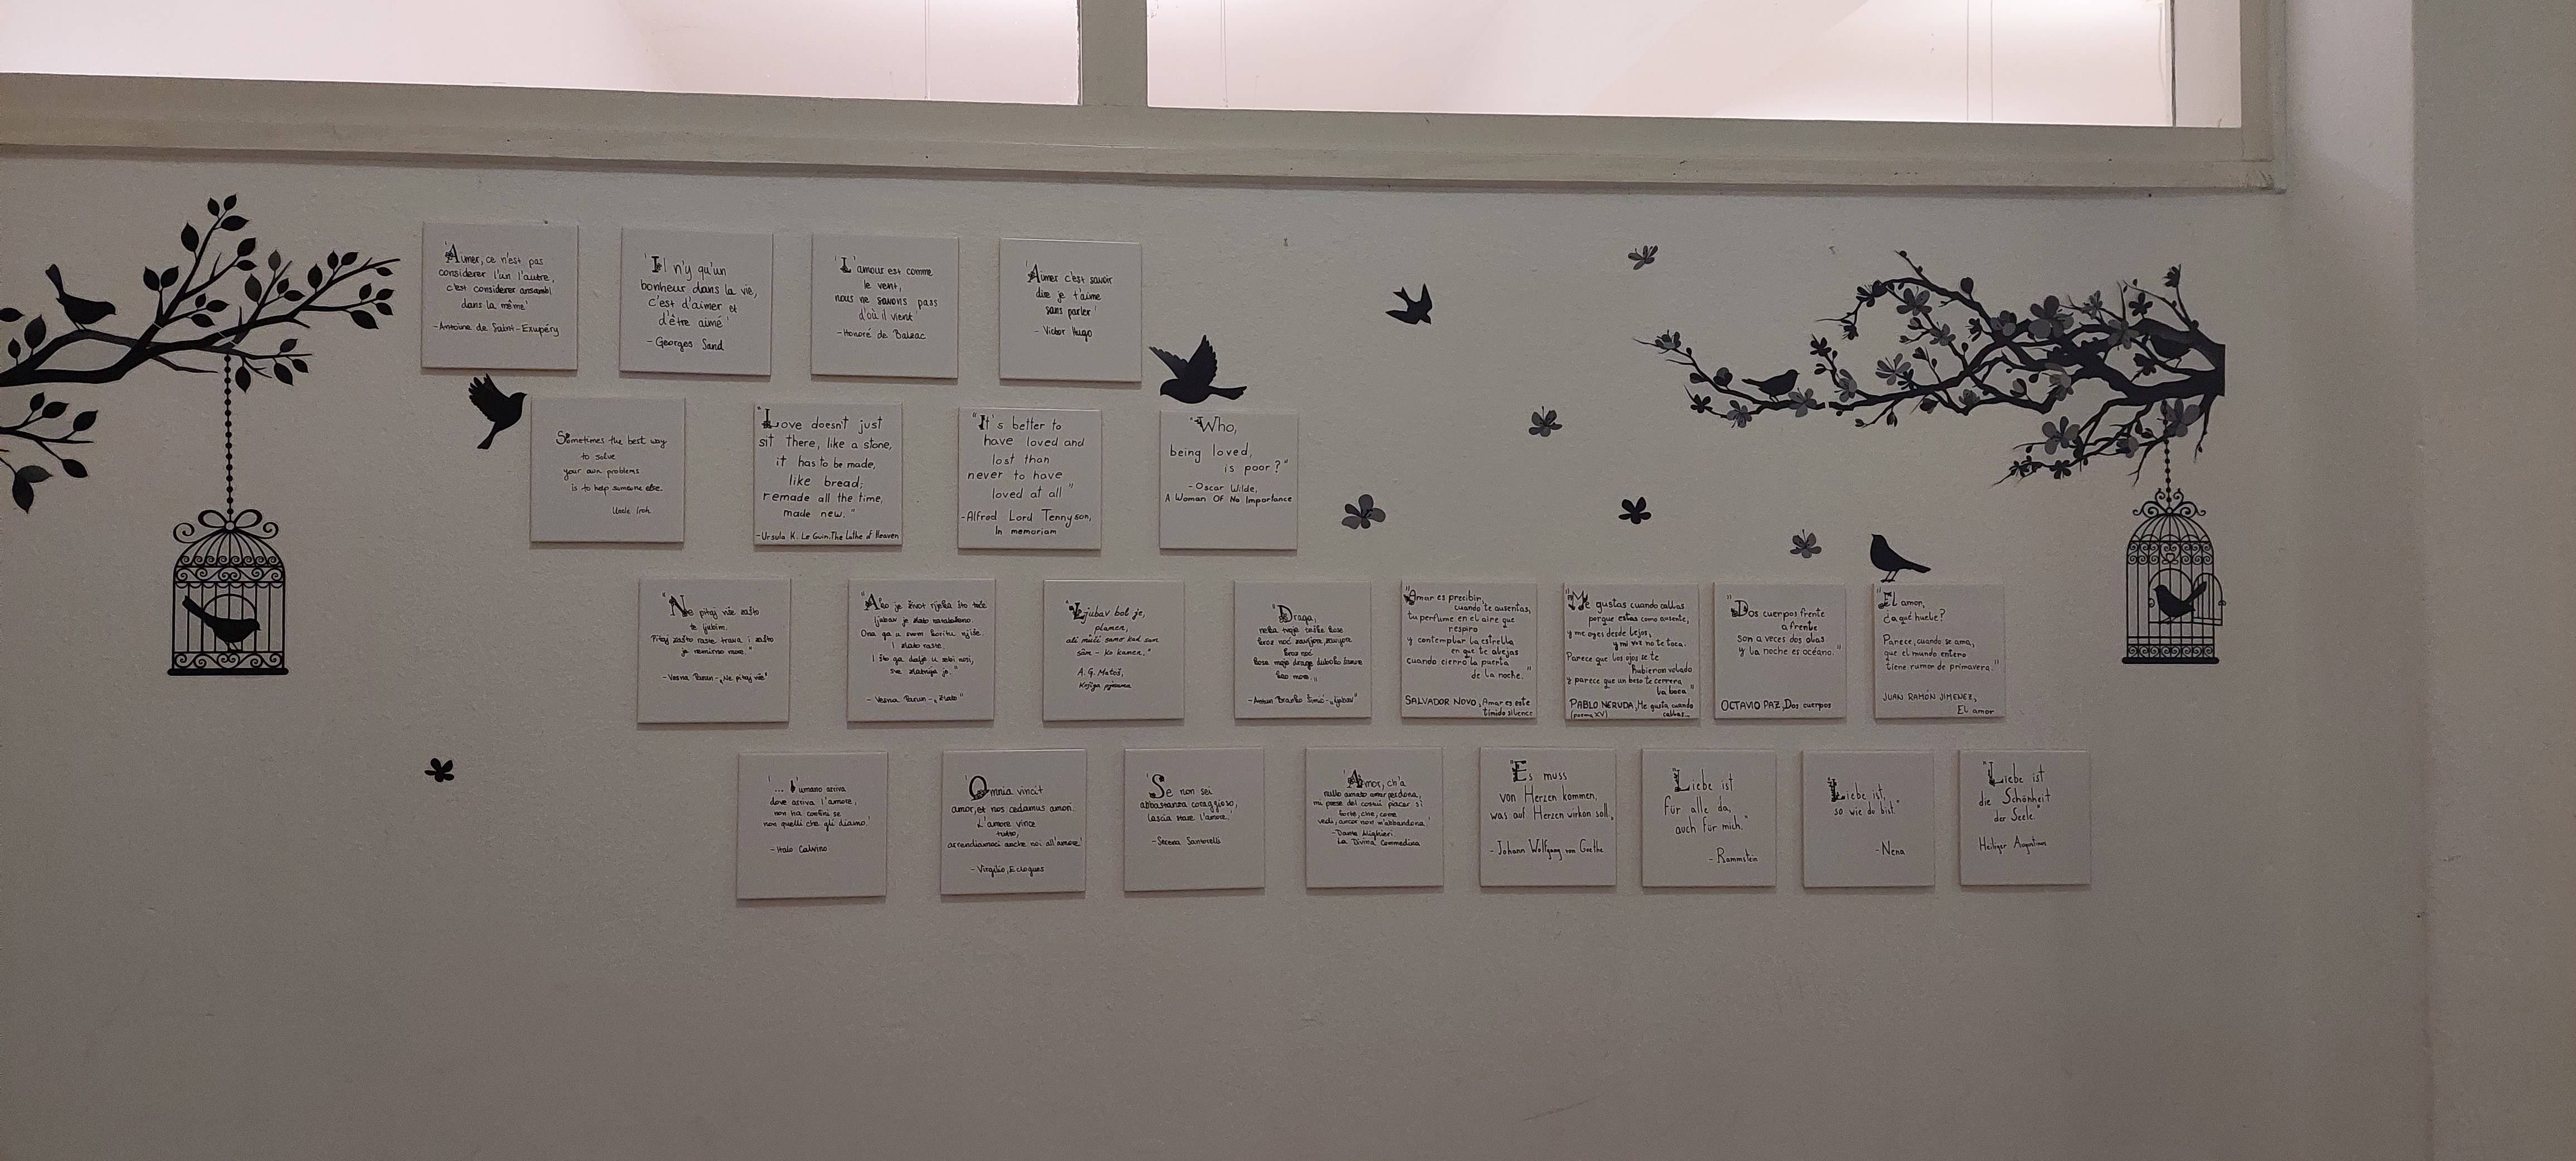 'Aimer, ce n'est pas
considerer l'un l'autre,
c'est considerer ansambl
dans la même'
-Antoine de Saint-Exupéry
'Il n'y qu'un
bonheur dans la vie,
c'est d'aimer et
d'être aimé'
- Georges Sand
'L'amour est comme
le vent,
nous ne savons pass
d'où il vient'
-Honoré de Balzac
'Aimer c'est savoir
dire je t'aime
sans parler'
- Victor Hugo
Sometimes the best way
to solve
your own problems
is to help someone else.
Uncle Iroh
"Love doesn't just
sit there, like a stone,
it has to be made,
like bread;
remade all the time,
made new."
-Ursula K. Le Guin, The Lathe of Heaven
"It's better to
have loved and
lost than
never to have
loved at all"
-Alfred Lord Tennyson,
In memoriam
"Who,
being loved,
is poor?"
- Oscar Wilde,
A Woman Of No Importance
"Ne pitaj više zašto
te ljubim.
Pitaj zašto raste trava i zašto
je nemirno more."
-Vesna Parun-„Ne pitaj više"
"Ako je život rijeka što teče
ljubav je zlato nataloženo.
Ona ga u svom koritu njiše.
I zlato raste.
I što ga dalje u sebi nosi,
sve zlatnija je."
- Vesna Parun-„Zlato"
"Ljubav bol je,
plamen,
ali muči samo kad sam
sām - ko kamen."
A. G. Matoš,
"Draga,
neka tvoje teške kose
kroz noć
kao more."
-Antun Branko Šimić-„Ljubav"
"Amar es precibir,
cuando te ausentas,
tu perfume en el aire que
respiro
y contemplar la estrella
en que te alejas
cuando cierro la puerta
de la noche."
SALVADOR NOVO, Amar es este
tímido silencio
"Me gustas cuando callas
porque estas como ausente,
y me oyes desde lejos,
y mi voz no te toca.
Parece que los ojos se te
hubieron volado
y parece que un beso te cerrera
la boca"
PABLO NERUDA, Me gusta cuando
(poema XV) callas...
"Dos cuerpos frente
a frente
son a veces dos olas
y la noche es océano."
OCTAVIO PAZ, Dos cuerpos
"El amor,
¿a qué huele?
Parece, cuando se ama,
que el mundo entero
tiene rumor de primavera."
JUAN RAMÓN JIMENEZ,
El amor
'... L'umano arriva
dove arriva l'amore,
non ha confini se
non quelli che gli diamo.'
- Italo Calvino
'Omnia vincit
amor, et nos cedamus amori.
L'amore vince
tutto,
arrendiamoci anche noi all'amore'
- Virgilio, Eclogues
'Se non sei
abbastanza coraggioso,
lascia stare l'amore.'
-Serena Santorelli
'Amor, ch'a
nullo amato amar perdona,
mi prese del costui piacer sì
forte, che, come
vedi, ancor non m'abbandona.'
-Dante Alighieri
La Divina Commedina
"Es muss
von Herzen kommen,
was auf Herzen wirken soll.
- Johann Wolfgang von Goethe
"Liebe ist
für alle da,
auch für mich."
- Rammstein
"Liebe ist,
so wie du bist."
-Nena
"Liebe ist
die Schönheit
der Seele."
Heiliger Augustinus